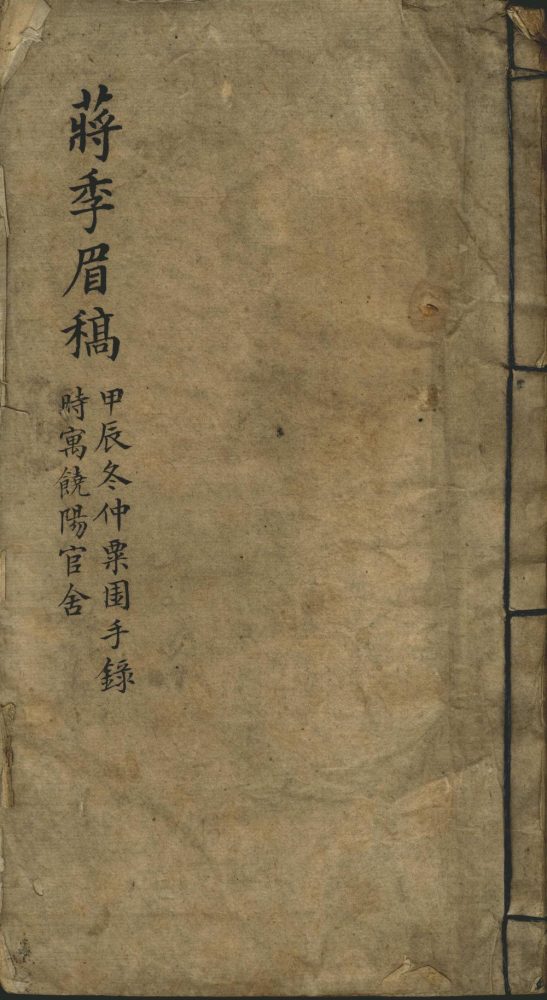 蔣季眉稿
甲辰冬仲粟圉手錄
時寓饒陽官舍